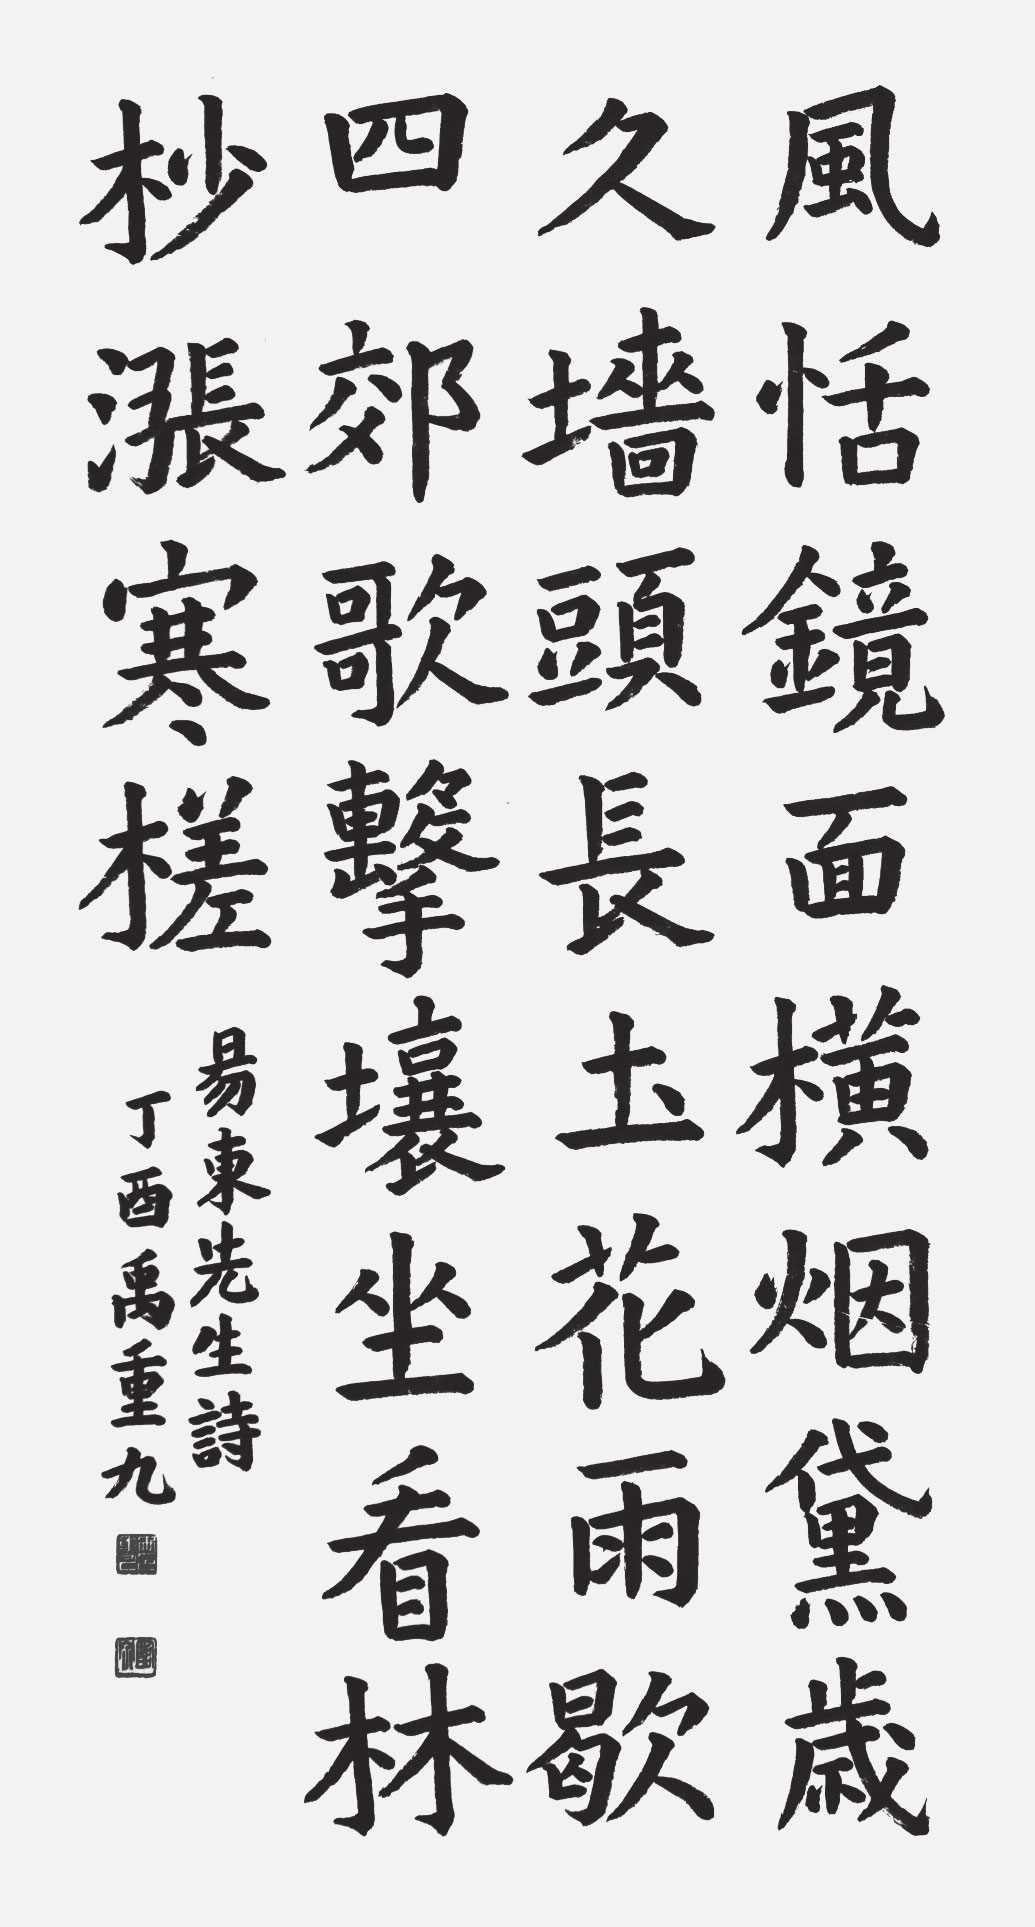 風恬鏡面橫烟黛歲
久墻頭長土花雨歇
四郊歌擊壤坐看林
杪漲寒槎
昜東先生詩
丁酉禹重九